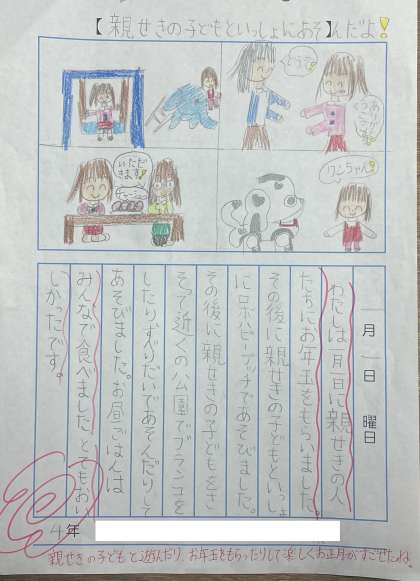 【親せきの子どもといっしょにあそ】んだよ!
どうぞ
ありがとうございます
いただきます!
ワンちゃん!
一月一日 曜日
わたしは一月一日に親せきの人
たちにお年玉をもらいました。
その後に親せきの子どもといっしょ
にボバビーブッチであそびました。
その後に、親せきの子どもをさ
そって近くの公園でブランコを
したりすべりだいであそんだりして
あそびました。お昼ごはんは
みんなで食べました。とてもおい
しかったです。
4年
親せきの子どもと遊んだり、お年玉をもらったりして楽しくお正月がすごせたね。